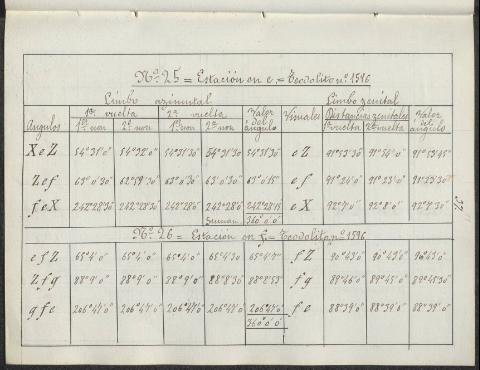 Nº 25 = Estación en e = Teodolito nº 1516
Limbo azimutal Limbo zenital
1ª vuelta 2ª vuelta Valor del ángulo Visuales Distancias zenitales Valor del ángulo
Angulos 1er non 2º non 1er non 2º non 1ª vuelta 2ª vuelta
X e Z 54°31'0" 54°32'0" 54°31'30" 54°31'30" 54°31'30" e Z 91°53'30" 91°54'0" 91°53'45"
Z e f 63°0'30" 62°59'30" 63°0'30" 63°0'30" 63°0'15" e f 91°24'0" 91°23'0" 91°23'30"
f e X 242°28'30" 242°28'30" 242°28'0" 242°28'0" 242°28'15" e X 92°7'0" 92°8'0" 92°7'30"
Suman 360°0'0"
Nº 26 = Estación en f = Teodolito nº 1516
e f Z 65°4'0" 65°4'0" 65°4'0" 65°4'30" 65°4'7" f Z 90°43'0" 90°43'0" 90°43'0"
Z f g 88°9'0" 88°9'0" 88°9'0" 88°8'30" 88°8'53" f g 89°46'0" 89°45'0" 89°45'30"
g f e 206°47'0" 206°47'0" 206°47'0" 206°47'0" 206°47'0" f e 88°39'0" 88°39'0" 88°39'0"
360°0'0"